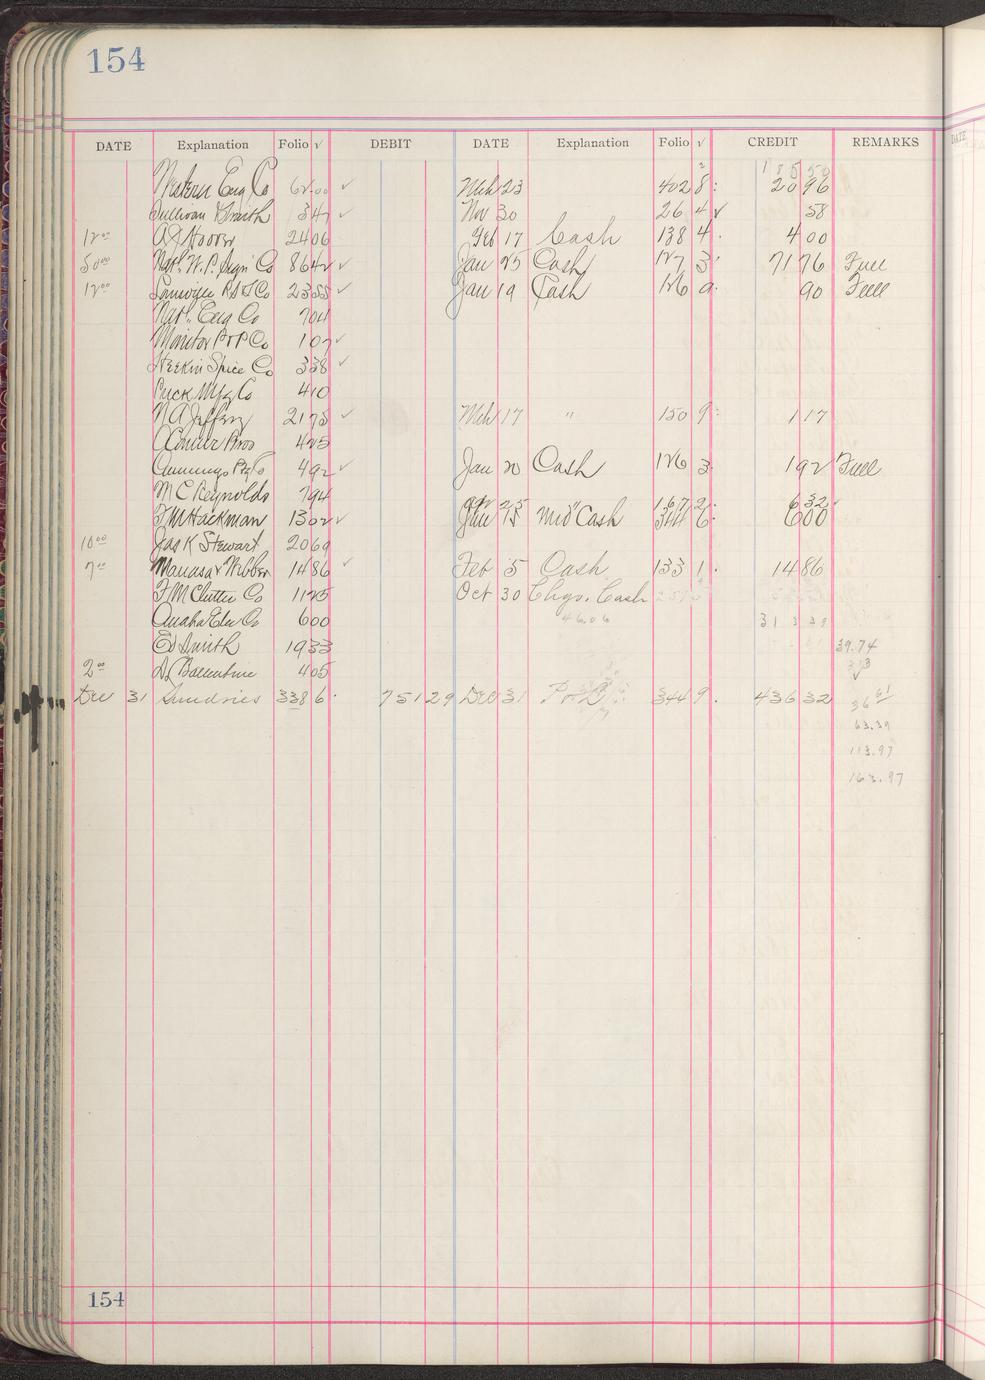 154
DATE Explanation Folio √ DEBIT DATE Explanation Folio √ CREDIT REMARKS
185 50
Western Eng Co 62.00 ✓ Mch 23 402 8 : 20 96
Sullivan & Smith 347 ✓ Nov 30 26 4 ✓ 58
12 00 A J Hoover 2406 Feb 17 Cash 138 4 . 4 00
50 00 Nat. W. P. Co 8642 ✓ Jan 25 Cash 127 3 71 76 Full
12 00 Co 2355 ✓ Jan 19 Cash 126 9 . 90 Full
Nat. Eng Co 704
Monitor P & P Co 107 ✓
Heekin Spice Co 338 ✓
Puck Mfg Co 410
N A Jeffery 2175 ✓ Mch 17 " 150 9 : 1 17
Bros 425
Cummings Co 492 ✓ Jan 20 Cash 126 3 1 92 Full
M C Reynolds 794
Apr 25 167 2 : 6 32
F M Hackman 1302 ✓ Jan 15 Cash 344 6 : 6 00
10 00 Jas K Stewart 2069
7 00 Manasa & Webber 1486 ✓ Feb 5 Cash 133 1 . 14 86
F M Clutter Co 1125 Oct 30 Chgs. Cash
Omaha Elev Co 600 46.06 31 3 39
Ed Smith 1933 39.74
2 00 Ballentine 405
Dec 31 Sundries 338 6 . 751 29 Dec 31 P & L 344 9 . 436 32 36 61
63.39
113.97
163.97
154